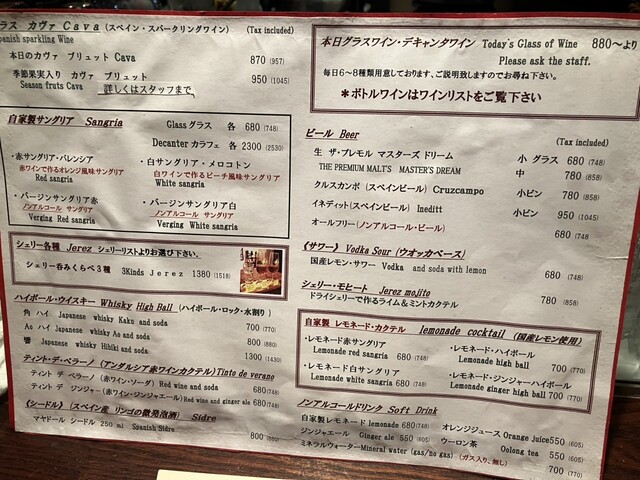 グラス カヴァ Cava (スペイン・スパークリングワイン) (Tax included)
panish sparkling Wine
本日のカヴァ ブリュット Cava 870 (957)
季節果実入り カヴァ ブリュット 950 (1045)
Season fruts Cava 詳しくはスタッフまで
自家製サングリア Sangria Glass グラス 各 680 (748)
Decanter カラフェ 各 2300 (2530)
・赤サングリア・バレンシア ・白サングリア・メロコトン
赤ワインで作るオレンジ風味サングリア 白ワインで作るピーチ風味サングリア
Red sangria White sangria
・バージンサングリア赤 ・バージンサングリア白
ノンアルコール サングリア ノンアルコール サングリア
Verging Red sangria Verging White sangria
シェリー各種 Jerez シェリーリストよりお選び下さい。
シェリー呑みくらべ3種 3Kinds Jerez 1380 (1518)
ハイボール・ウイスキー Whisky High Ball (ハイボール・ロック・水割り)
角 ハイ Japanese whisky Kaku and soda 700 (770)
Ao ハイ Japanese whisky Ao and soda 800 (880)
響 Japanese whisky Hibiki and soda 1300 (1430)
ティント・デ・ベラーノ (アンダルシア赤ワインカクテル) Tinto de verano
ティント デ ベラーノ (赤ワイン・ソーダ) Red wine and soda 680(748)
ティント デ ジンジャー (赤ワイン・ジンジャエール) Red wine and ginger ale 680(748)
《シードル》 (スペイン産 リンゴの微発泡酒) Sidre
マヤドール シードル 250 ml Spanish Sidre 800 (880)
本日グラスワイン・デキャンタワイン Today's Glass of Wine 880〜より
Please ask the staff.
毎日6〜8種類用意しております、ご説明致しますのでお尋ね下さい。
*ボトルワインはワインリストをご覧下さい
ビール Beer (Tax included)
生 ザ・プレモル マスターズ ドリーム 小 グラス 680 (748)
THE PREMIUM MALT'S MASTER'S DREAM 中 780 (858)
クルスカンポ (スペインビール) Cruzcampo 小ビン 780 (858)
イネディット(スペインビール) Ineditt 小ビン 950 (1045)
オールフリー(ノンアルコール・ビール) 680 (748)
《サワー》 Vodka Sour (ウオッカベース)
国産レモン・サワー Vodka and soda with lemon 680 (748)
シェリー・モヒート Jerez mojito
ドライシェリーで作るライム&ミントカクテル 780 (858)
自家製 レモネード・カクテル lemonade cocktail (国産レモン使用)
・レモネード赤サングリア ・レモネード・ハイボール
Lemonade red sangria 680 (748) Lemonade high ball 700 (770)
・レモネード白サングリア ・レモネード・ジンジャーハイボール
Lemonade white sangria 680 (748) Lemonade ginger high ball 700 (770)
ノンアルコールドリンク Soft Drink
自家製レモネード lemonade 680(748) オレンジジュース Orange Juice 550 (605)
ジンジャエール Ginger ale 550 (605) ウーロン茶 Oolong tea 550 (605)
ミネラルウォーター Mineral water (gas/no gas) (ガス入り、無し) 700 (770)